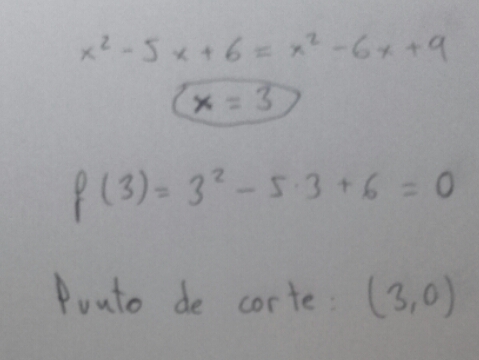 x² - 5x + 6 = x² - 6x + 9
x = 3
f(3) = 3² - 5·3 + 6 = 0
Punto de corte: (3,0)